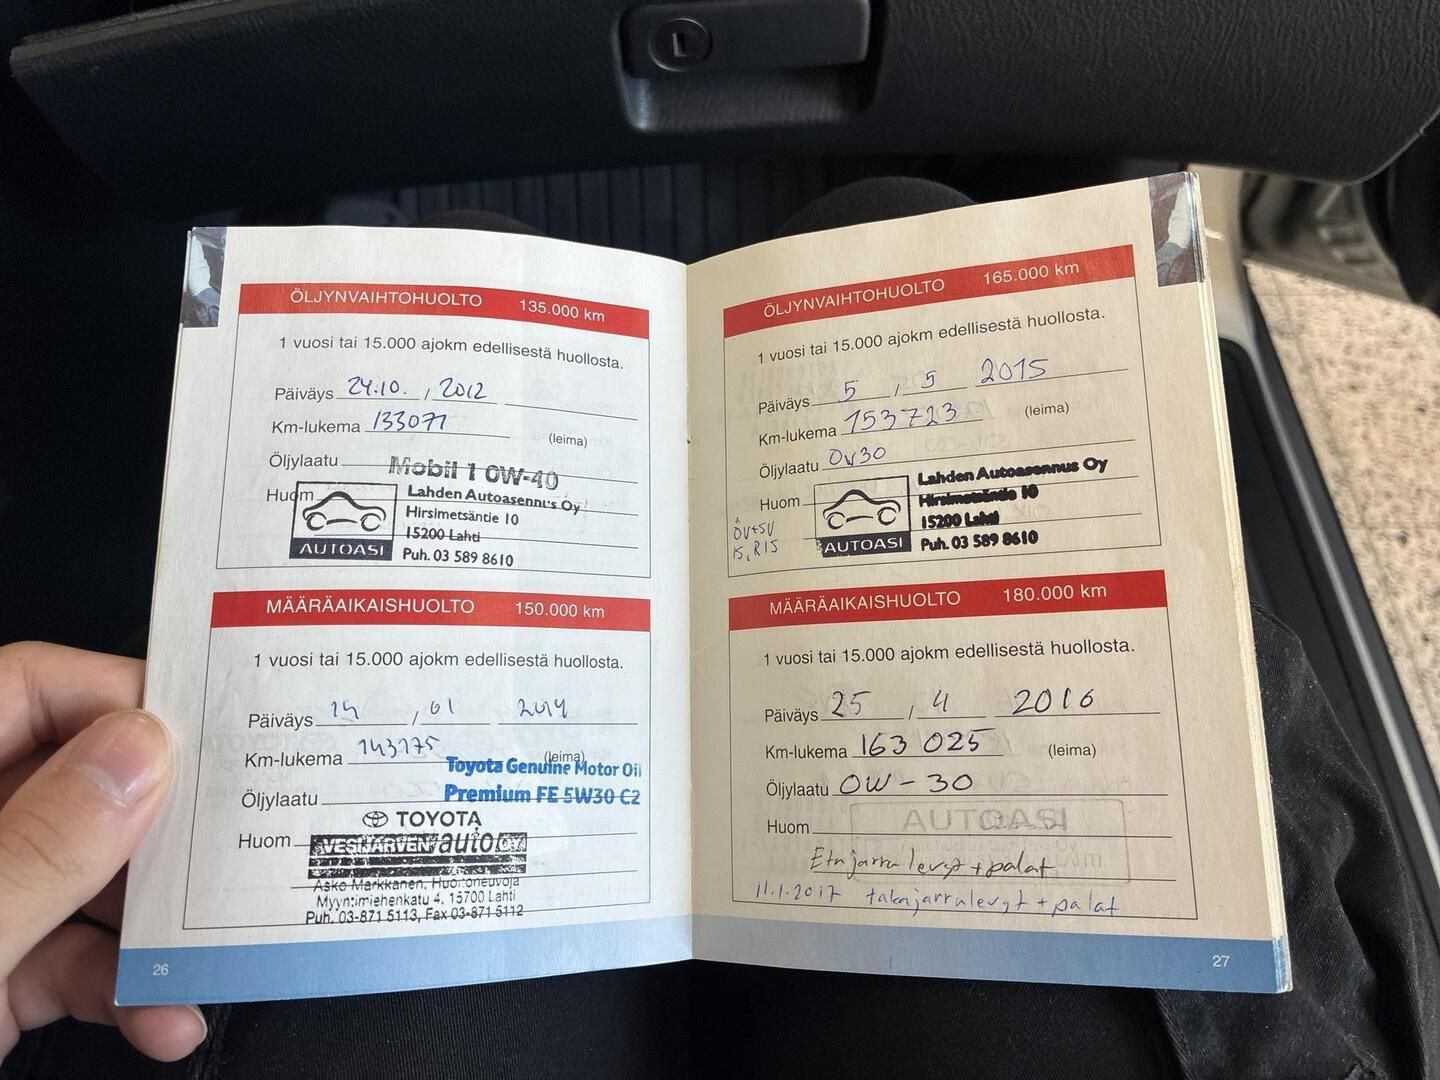 ÖLJYNVAIHTOHUOLTO 135.000 km
1 vuosi tai 15.000 ajokm edellisestä huollosta.
Päiväys 24.10. , 2012
Km-lukema 133071
(leima)
Öljylaatu Mobil 1 0W-40
Huom
AUTOASI
Lahden Autoasennus Oy
Hirsimetsäntie 10
15200 Lahti
Puh. 03 589 8610
MÄÄRÄAIKAISHUOLTO 150.000 km
1 vuosi tai 15.000 ajokm edellisestä huollosta.
Päiväys 14 , 01 2014
Km-lukema 143175 (leima)
Toyota Genuine Motor Oil
Öljylaatu Premium FE 5W30 C2
TOYOTA
Huom VESIJÄRVEN auto OY
Asko Markkanen, Huoltoneuvoja
Myyntimiehenkatu 4, 15700 Lahti
Puh. 03-871 5113, Fax 03-871 5112
26
ÖLJYNVAIHTOHUOLTO 165.000 km
1 vuosi tai 15.000 ajokm edellisestä huollosta.
Päiväys 5 , 5 2015
Km-lukema 153723 (leima)
Öljylaatu 0W30
Huom
ÖV+SV
IS, RIS
AUTOASI
Lahden Autoasennus Oy
Hirsimetsäntie 10
15200 Lahti
Puh. 03 589 8610
MÄÄRÄAIKAISHUOLTO 180.000 km
1 vuosi tai 15.000 ajokm edellisestä huollosta.
Päiväys 25 , 4 2016
Km-lukema 163 025 (leima)
Öljylaatu 0W-30
Huom
AUTOASI
Etujarru levyt + palat
11.1.2017 takajarrulevyt + palat
27